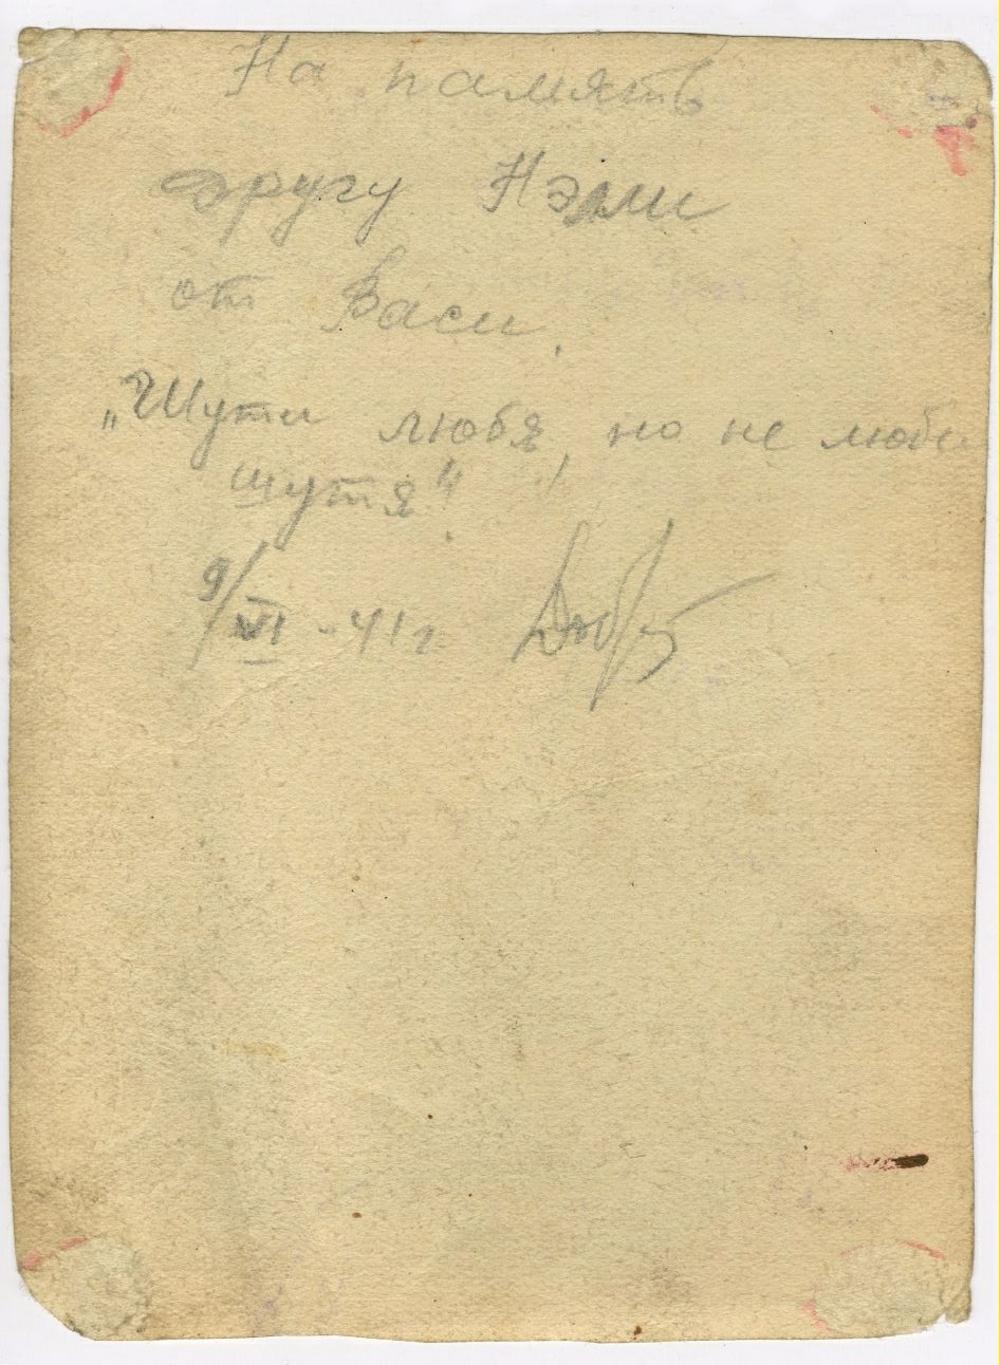 На память
другу Нэлли
от Васи.
„Шути любя, но не люби
шутя".
9/VI - 41 г